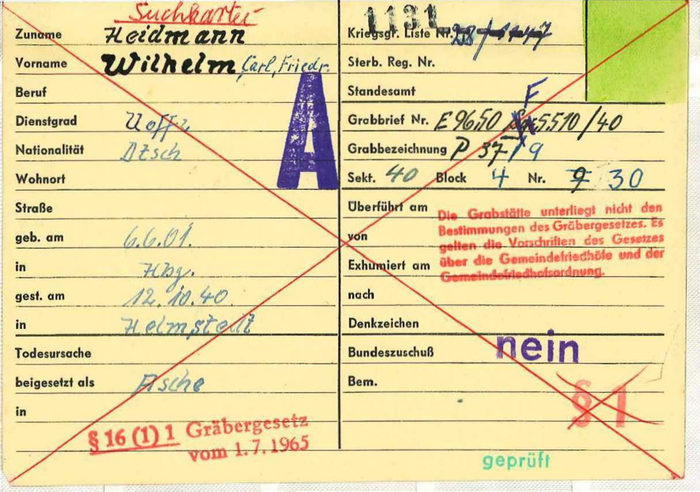 Suchkartei
Zuname Heidmann
Vorname Wilhelm Carl, Friedr.
Beruf
Dienstgrad Uoffz
Nationalität Dtsch
Wohnort
Straße
geb. am 6.6.01.
in Hbg.
gest. am 12.10.40
in Helmstedt
Todesursache
beigesetzt als Asche
in
§ 16 (1) 1 Gräbergesetz
vom 1.7.1965
A
1131
Kriegsgr. Liste Nr.
Sterb. Reg. Nr.
Standesamt
F
Grabbrief Nr. E 9650 5510/40
Grabbezeichnung P 37/9
Sekt. 40 Block 4 Nr. 9 30
Überführt am
von
Exhumiert am
nach
Die Grabstätte unterliegt nicht den
Bestimmungen des Gräbergesetzes. Es
gelten die Vorschriften des Gesetzes
über die Gemeindefriedhöfe und der
Gemeindefriedhofsordnung.
Denkzeichen
Bundeszuschuß nein
Bem.
§ 1
geprüft